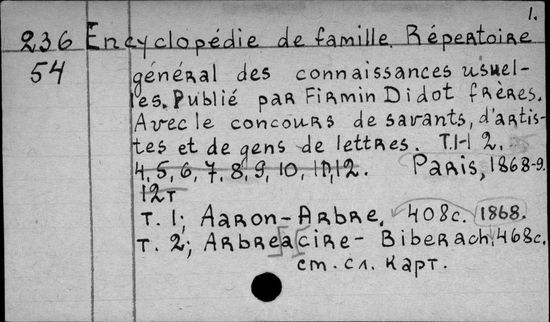 1.
236 Encyclopédie de famille. Répertoire
54 général des connaissances usuel-
les. Publié par Firmin Didot frères.
Avec le concours de savants, d'artis-
tes et de gens de lettres. T.1-1 2.
4, 5, 6, 7, 8, 9, 10, 11, 12. Paris, 1868-9.
12т
т. 1; Aaron-Arbre, 408c. 1868.
т. 2; Arbre a cire - Biberach. 468c.
см. сл. карт.